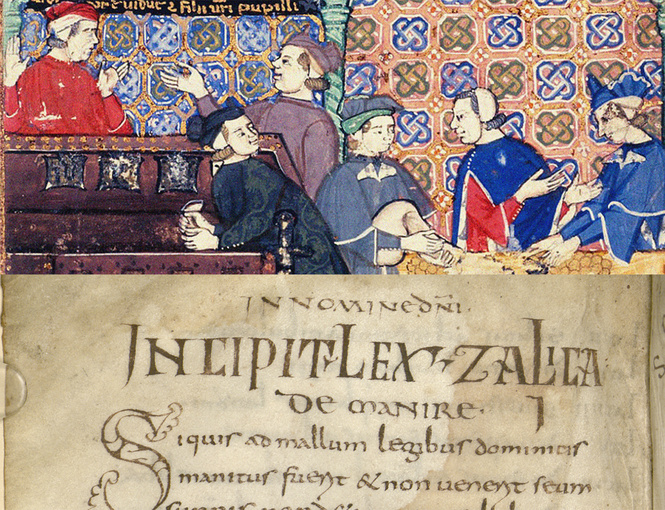 pupilli
IN NOMINE DNI
INCIPIT LEX ZALICA
DE MANIRE I
Siquis ad mallum legibus dominicis
manitus fuerit & non uenerit seum